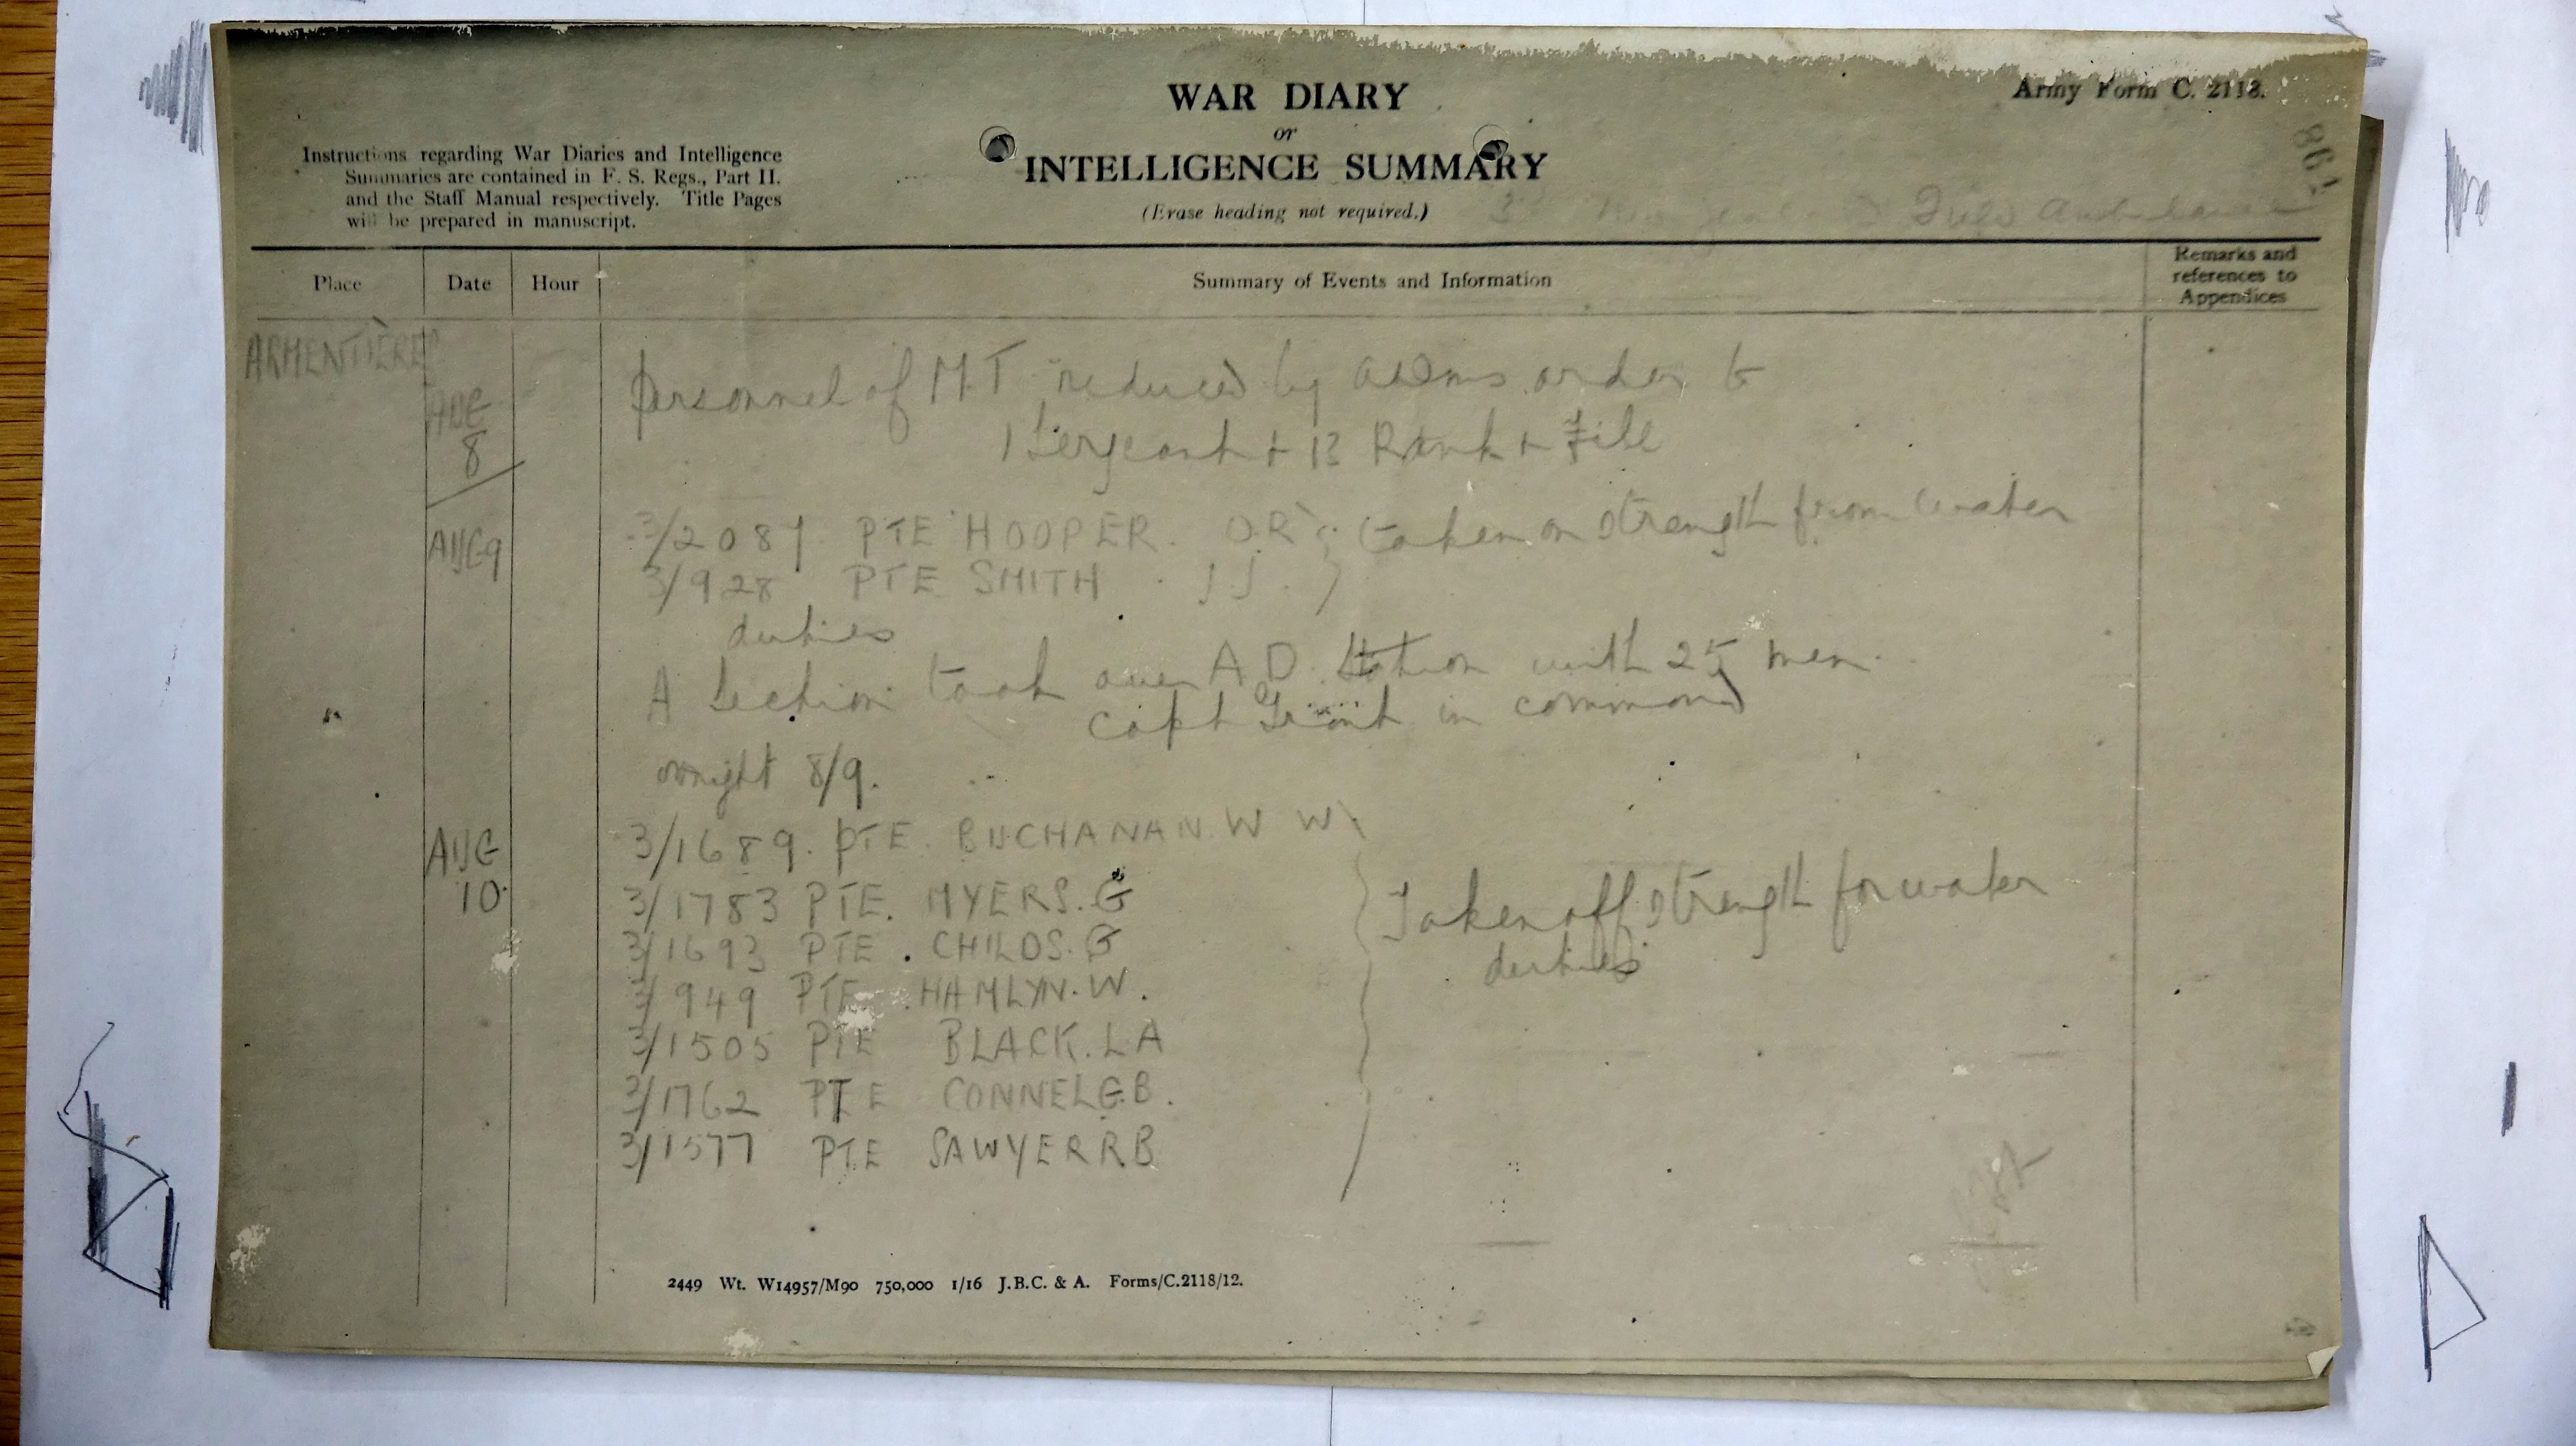 WAR DIARY
or
INTELLIGENCE SUMMARY
(Erase heading not required.)
Army Form C. 2118.
861
Instructions regarding War Diaries and Intelligence
Summaries are contained in F. S. Regs., Part II.
and the Staff Manual respectively. Title Pages
will be prepared in manuscript.
3 Field Ambulance
Place Date Hour Summary of Events and Information Remarks and
references to
Appendices
ARMENTIÈRES
AUG
8
personnel of M.T. reduced by ADMS order to
1 Sergeant + 13 Rank + File
AUG 9
3/2087 PTE HOOPER. O.R } taken on strength from water
3/928 PTE SMITH. J J. }
duties
A Section took over A D. Station with 25 men.
Capt Grant in command
overnight 8/9.
AUG
10
3/1689. PTE. BUCHANAN. W W
3/1783 PTE. MYERS. G
3/1693 PTE. CHILDS. G
3/949 PTE. HAMLYN. W.
3/1505 PTE BLACK. L A
3/1762 PTE CONNEL G.B.
3/1577 PTE SAWYER R B
Taken off strength for water
duties
2449 Wt. W14957/M90 750,000 1/16 J.B.C. & A. Forms/C.2118/12.